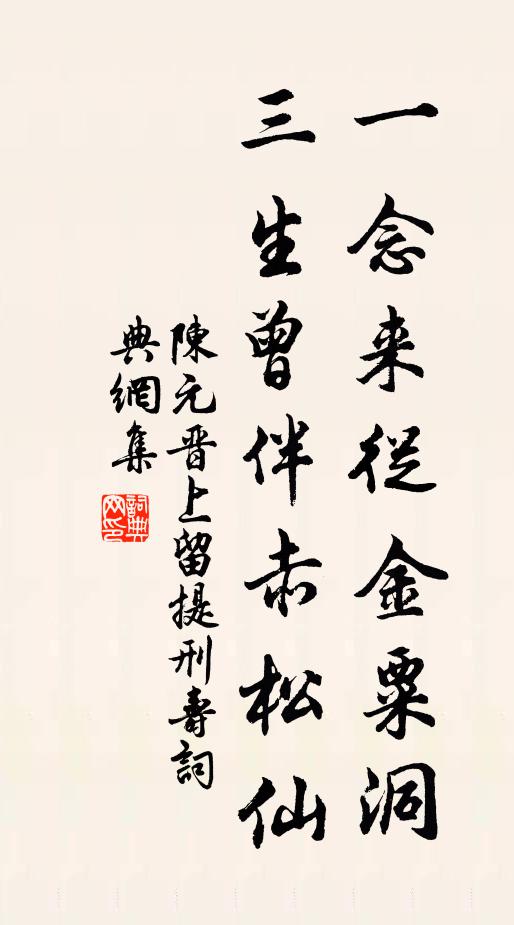 一念来從金粟洞
三生曾伴赤松仙
陳元晋上留提刑壽詞
典網集
詞典網印